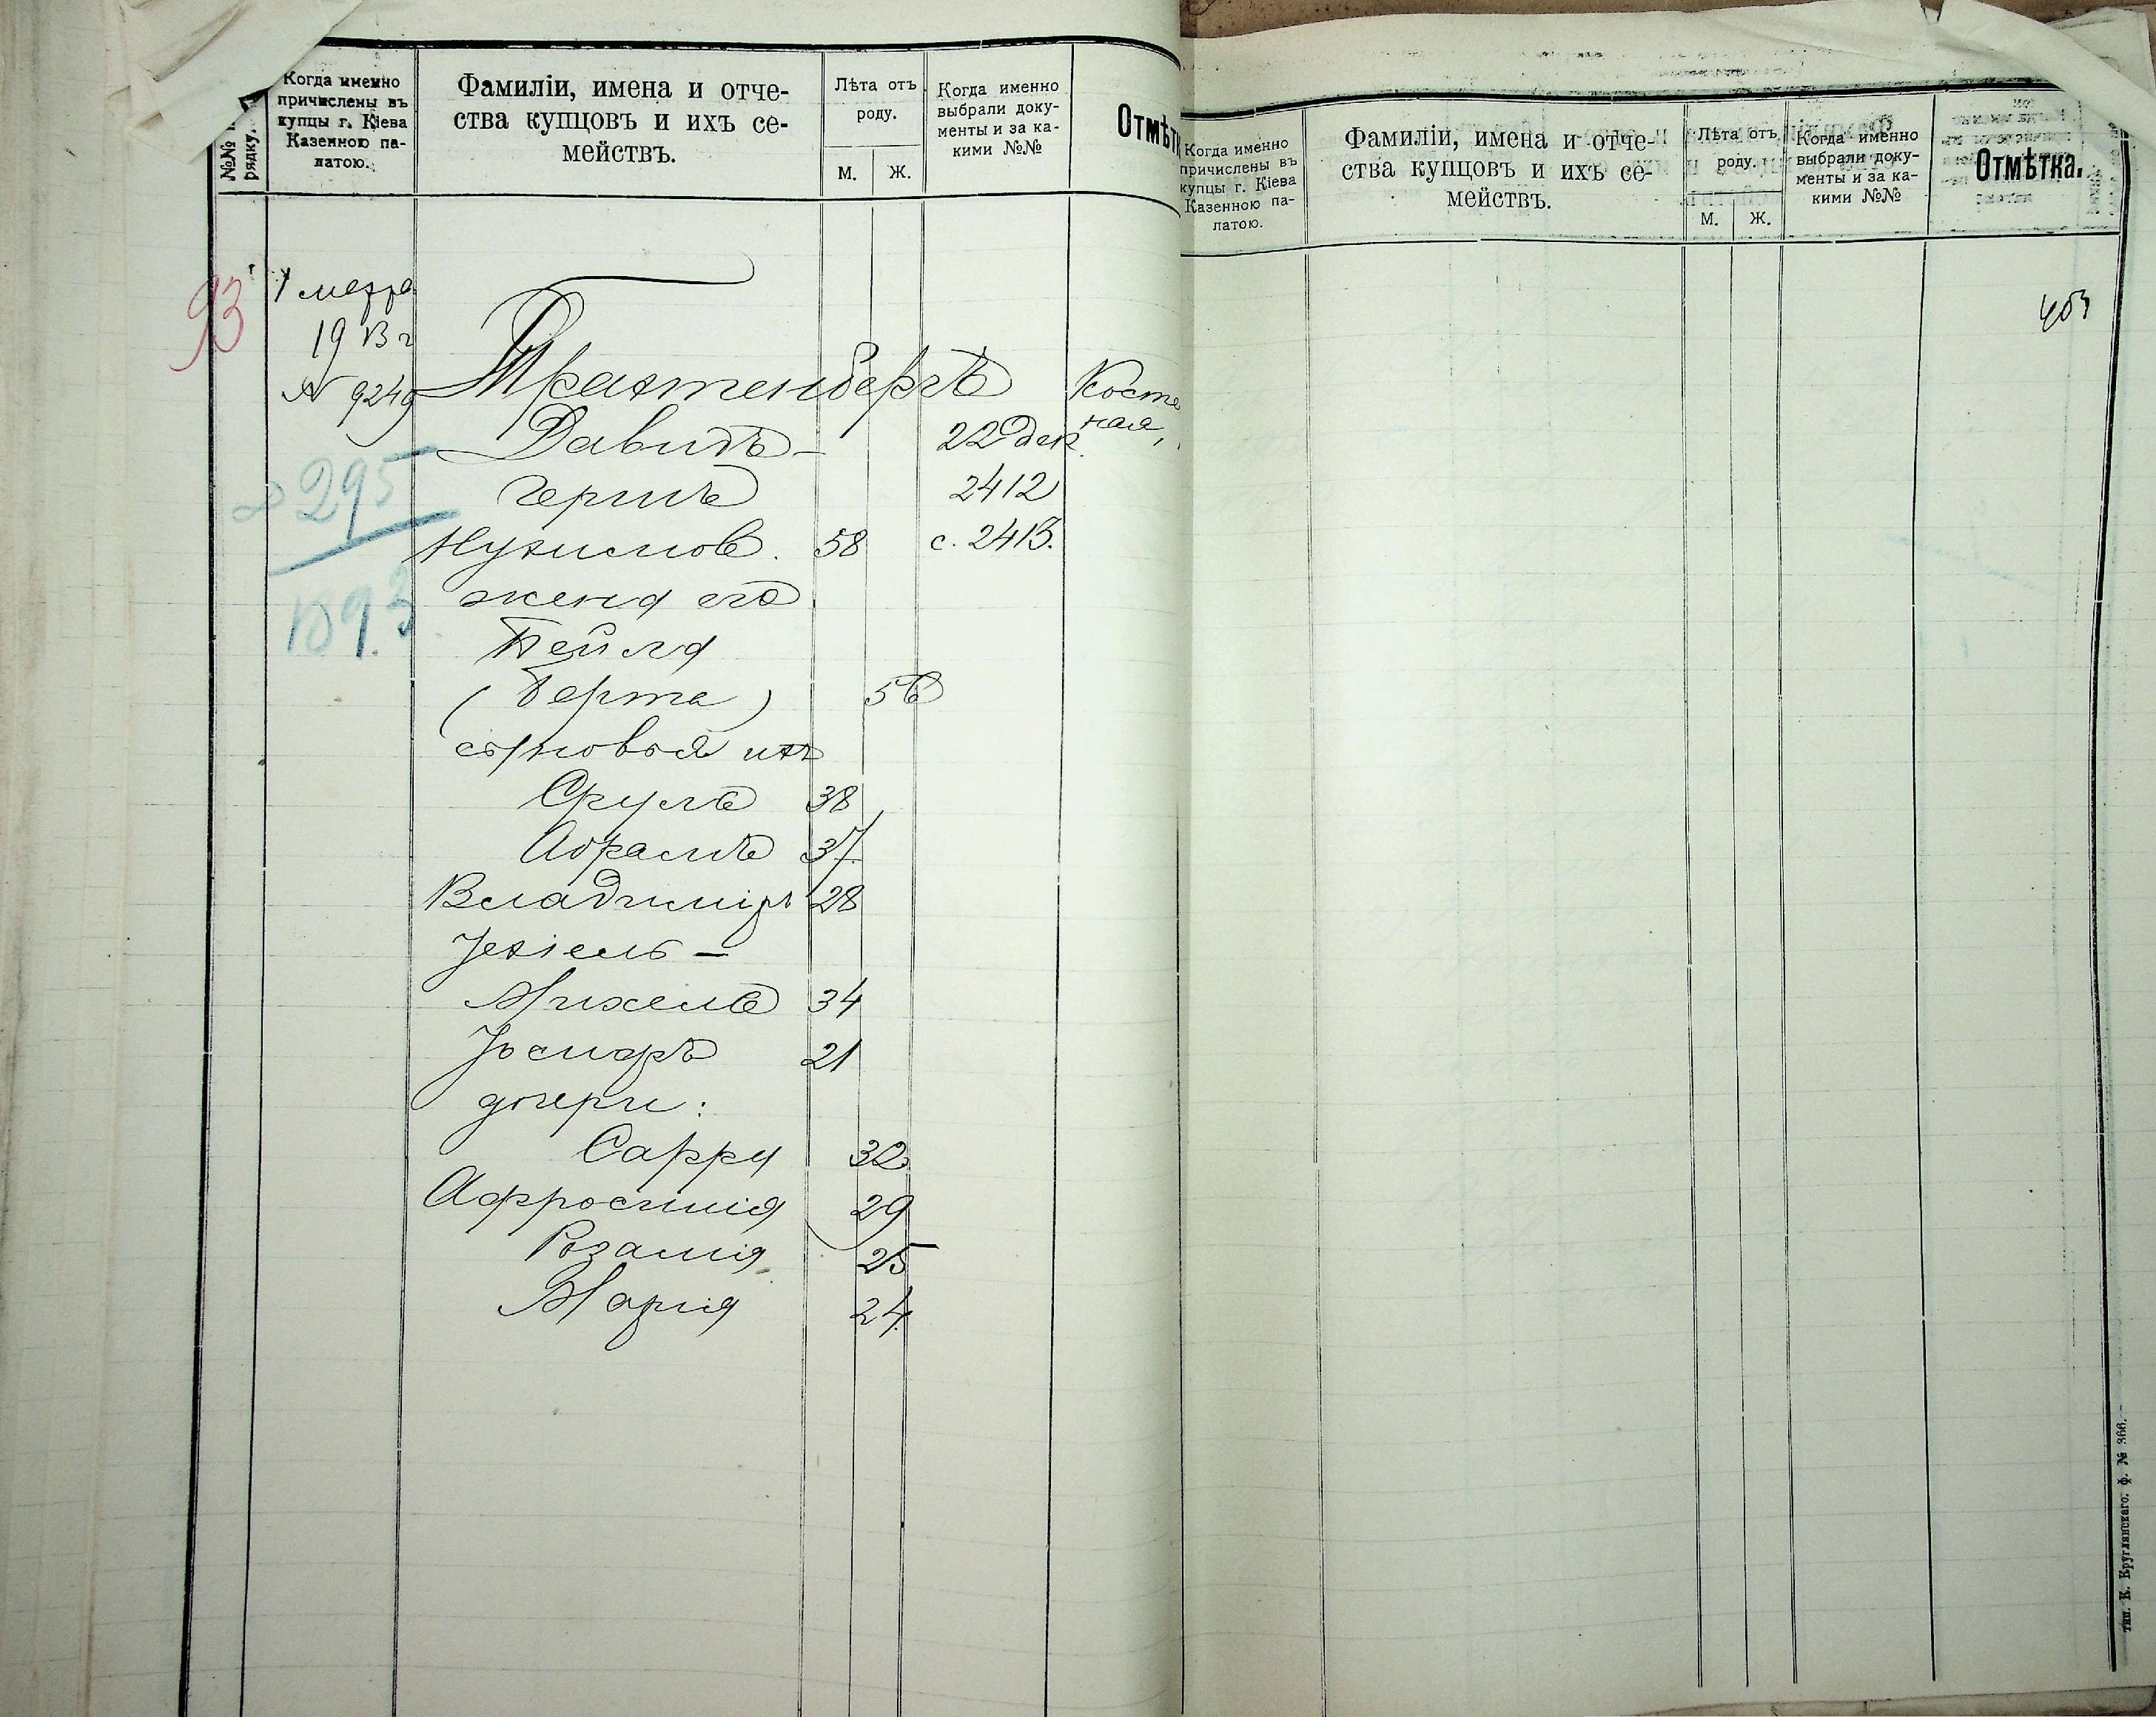 Когда именно
причислены въ
купцы г. Кіева
Казенною па-
латою.
Фамиліи, имена и отче-
ства купцовъ и ихъ се-
мействъ.
Лѣта отъ
роду.
М. Ж.
Когда именно
выбрали доку-
менты и за ка-
кими №№
Отмѣтк
№№
рядку.
93
1 марта
1913 г
№ 9249
295
1893
Трахтенбергъ
Давидъ-
Гершъ
Нухимов. 58
жена его
Бейла
(Берта) 56
сыновья ихъ
Сруль 38
Абрамъ 37
Владиміръ 28
Іехіель-
Михель 34
Іосифъ 21
дочери:
Сарра 32
Афросинія 29
Розалія 25
Марія 24
22 дек.
2412
с. 2413.
Косте
ная,
Когда именно
причислены въ
купцы г. Кіева
Казенною па-
латою.
Фамиліи, имена и отче-
ства купцовъ и ихъ се-
мействъ.
Лѣта отъ
роду.
М. Ж.
Когда именно
выбрали доку-
менты и за ка-
кими №№
Отмѣтка.
тип. К. Круглянскаго. ф. № 366.